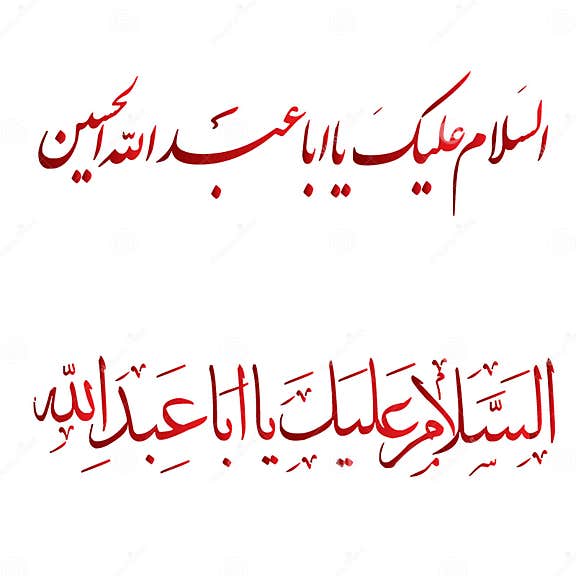 السلام علیک یا ابا عبد الله الحسین
السَّلَامُ عَلَیْکَ یَا اَبَا عَبدِ اللهِ